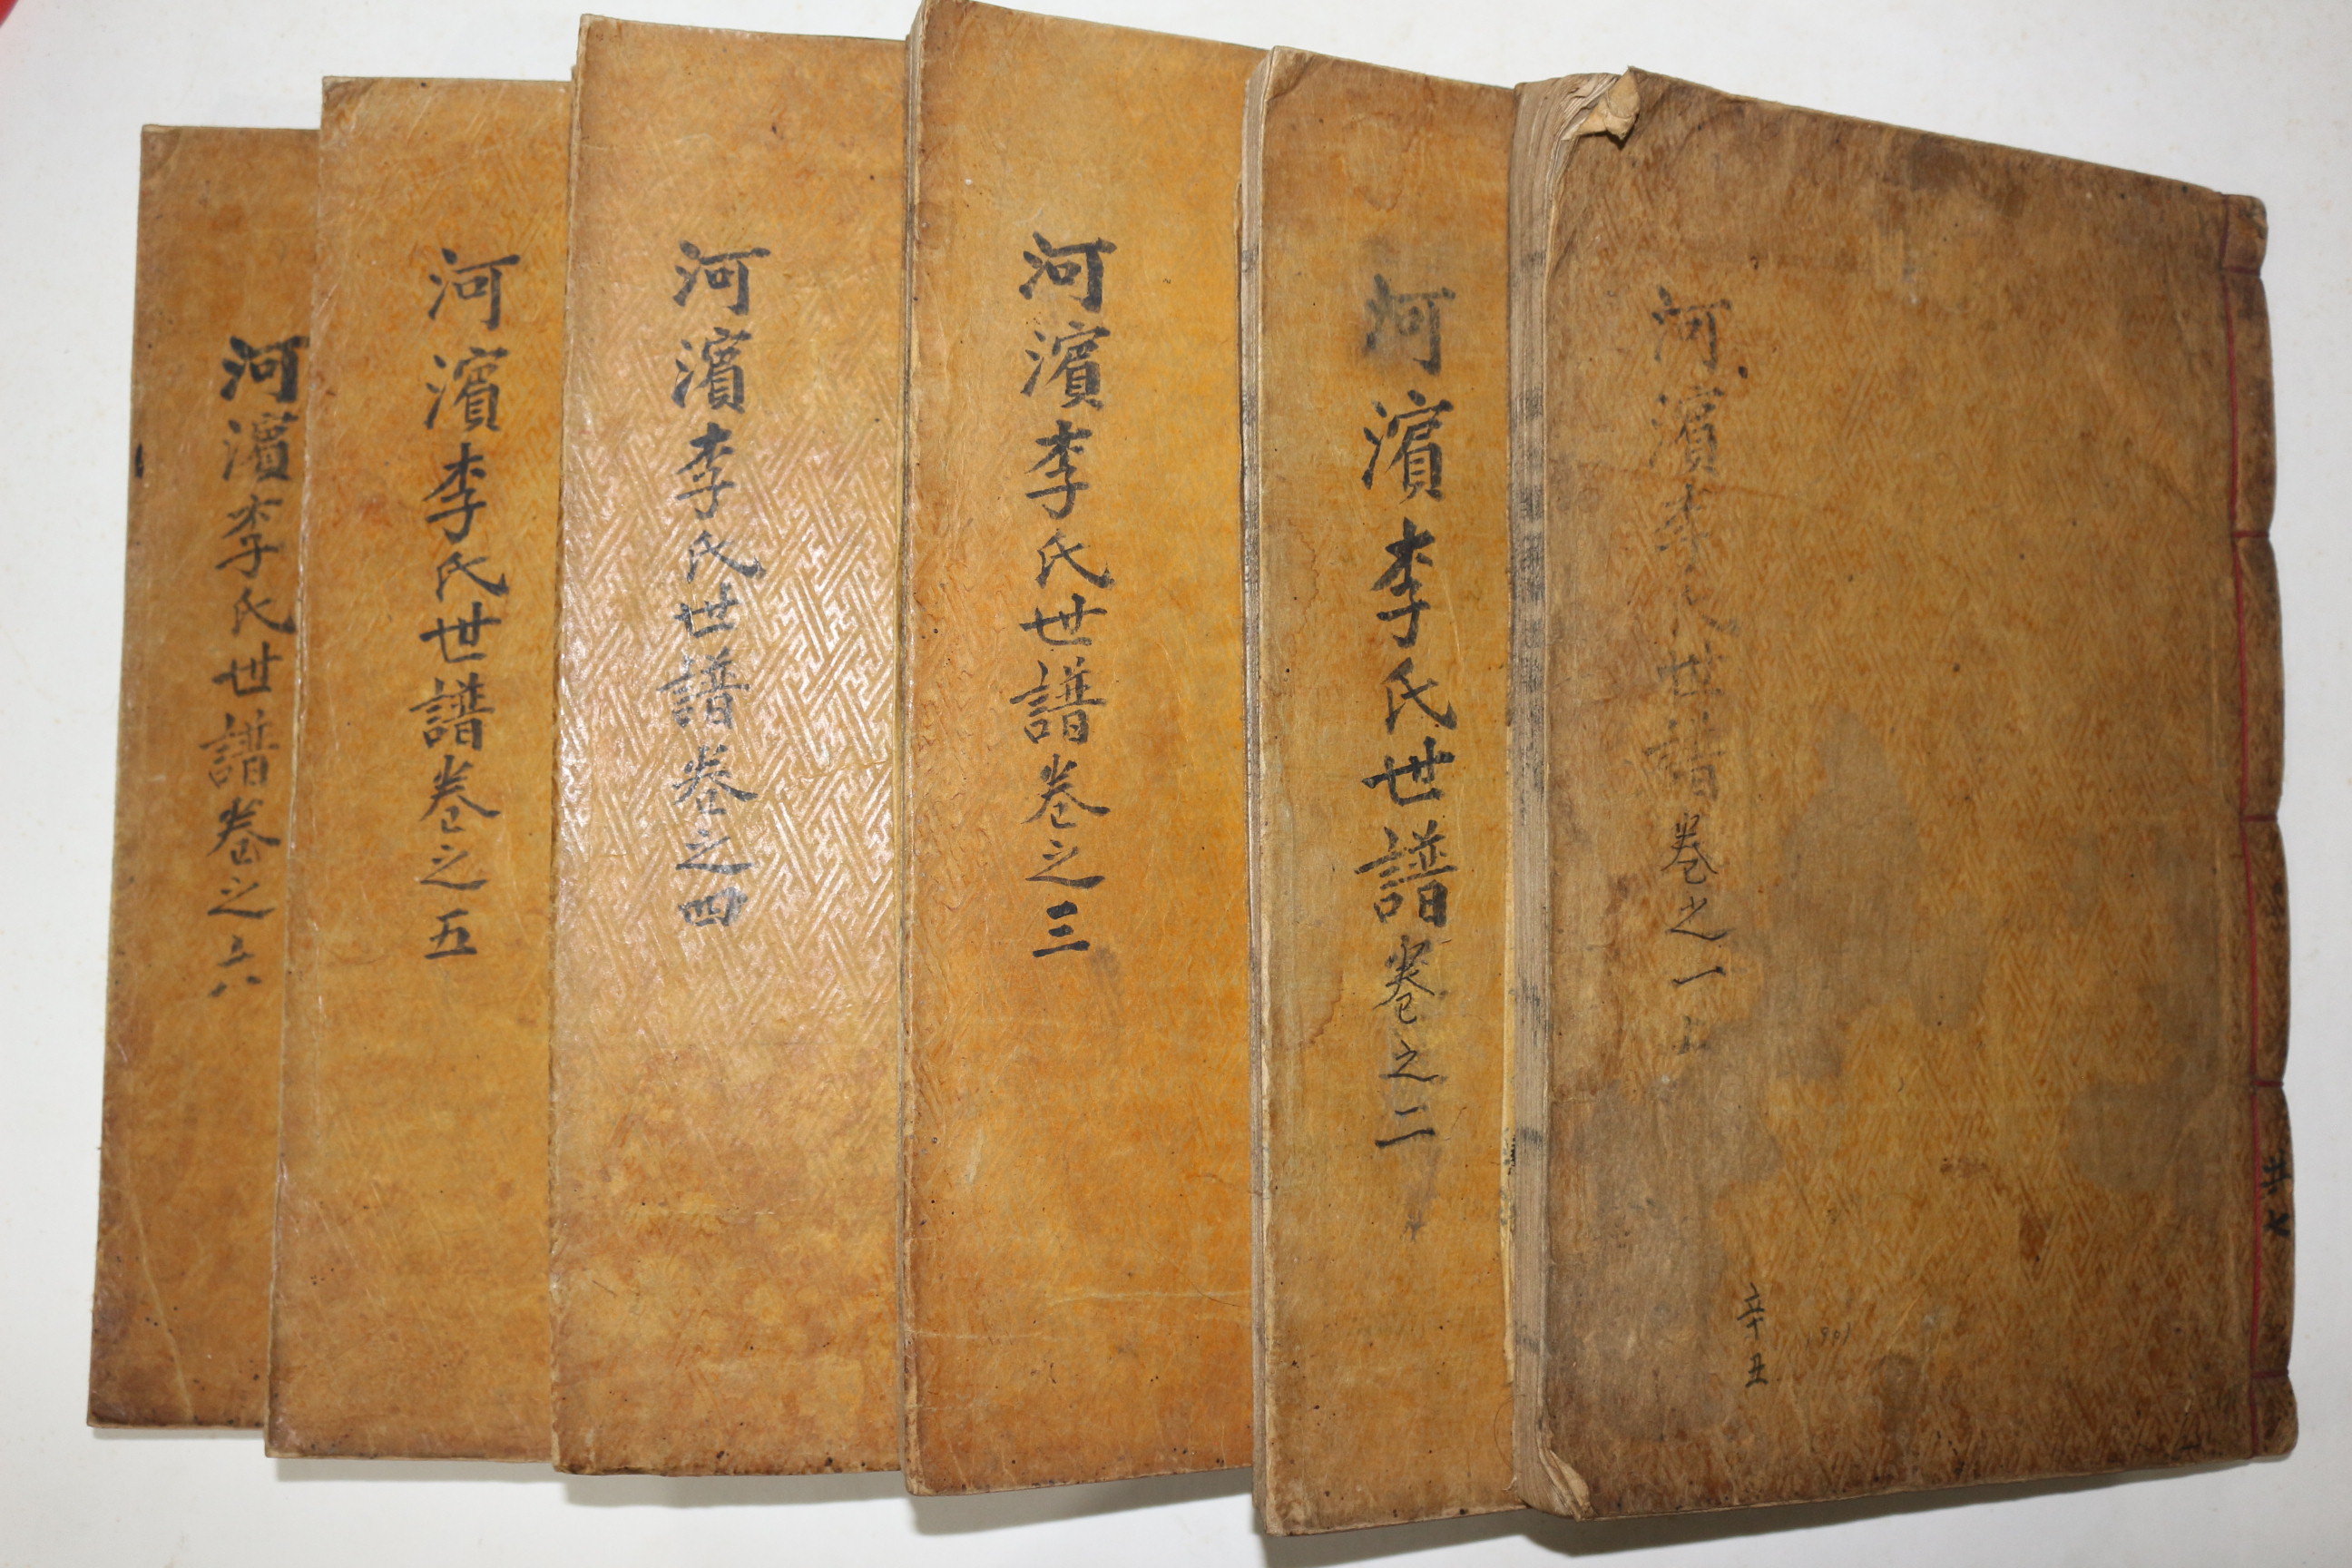 河濱李氏世譜卷之一上
辛丑
1901
共七
河濱李氏世譜卷之二
河濱李氏世譜卷之三
河濱李氏世譜卷之四
河濱李氏世譜卷之五
河濱李氏世譜卷之六